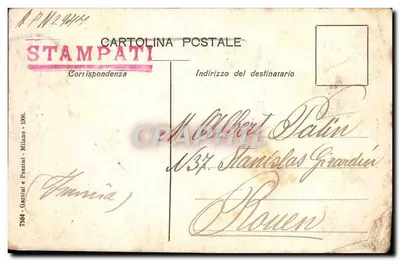 CARTOLINA POSTALE
STAMPATI
Corrispondenza
Indirizzo del destinatario
M. Albert Patin
N 37. Stanislas Girardin
(Francia)
Rouen
7564 - Garzini e Pezzini - Milano - 1906.
CPAPHIL